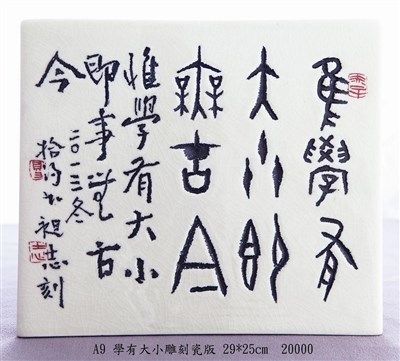 隹學有
大小即
無古今
惟學有大小
即事無古
今
二〇一三冬
祖志刻
A9 學有大小雕刻瓷版 29*25cm 20000